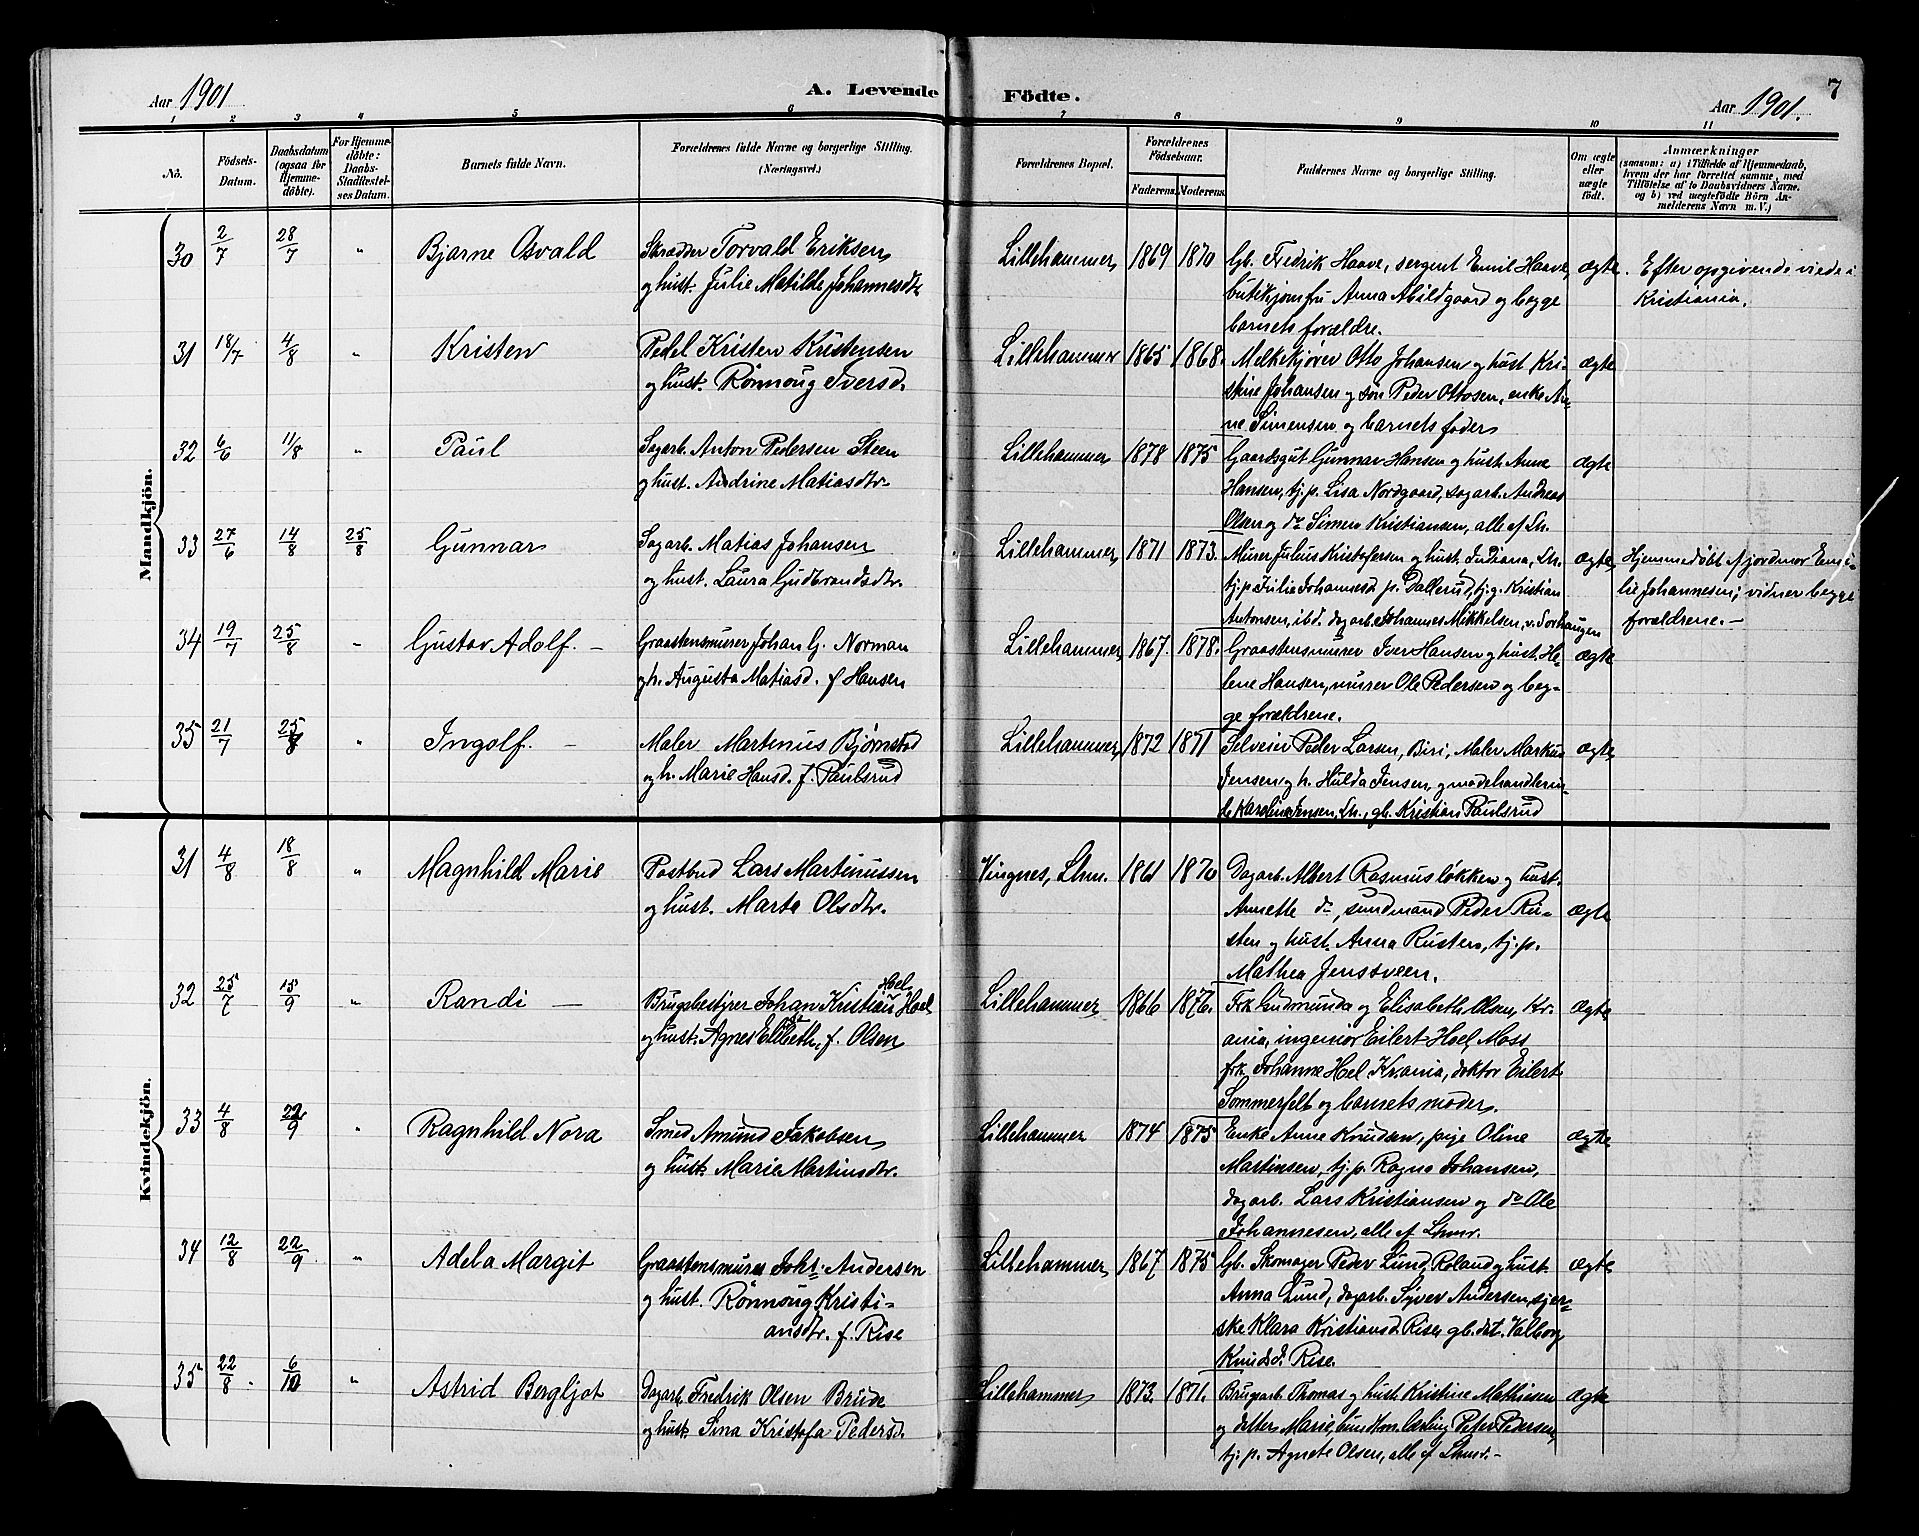 Aar 1901
A. Levende Födte.
Aar 1901.
7
1 2 3 4 5 6 7 8 9 10 11
No.
Födsels-
Datum.
Daabsdatum
(ogsaa for
Hjemme-
döbte).
For Hjemme-
döbte:
Daabs-
Stadfæstel-
ses Datum.
Barnets fulde Navn.
Forældrenes fulde Navne og borgerlige Stilling.
(Næringsvei.)
Forældrenes Bopæl.
Forældrenes
Födselsaar.
Faderens. Moderens.
Faddernes Navne og borgerlige Stilling.
Om ægte
eller
uægte
födt.
Anmærkninger
(saasom: a) i Tilfælde af Hjemmedaab,
hvem der har forrettet samme, med
Tilföielse af to Daabsvidners Navne,
og b) ved uægtefödte Börn An-
melderens Navn m. V.)
Mandkjön.
30 2/7 28/7 " Bjarne Osvald
Skrædder Torvald Eriksen
og hust. Julie Matilde Johannesdtr
Lillehammer 1869 1870
Gb. Fredrik Haave, sergent Emil Haave,
butikjomfru Anna Abildgaard og begge
barnets forældre.
ægte.
Efter opgivende viede i
Kristiania.
31 18/7 4/8 " Kristen
Pedel Kristen Kristensen
og hust. Rønnoug Iversd.
Lillehammer 1865 1868.
Melkekjører Otto Johansen og hust Kri-
stine Johansen og søn Peder Ottosen, enke An-
ne Simensen og barnets fader
ægte
32 6/6 11/8 " Paul
Sagarb. Anton Pedersen Steen
og hust. Andrine Matiasdtr.
Lillehammer 1878 1875
Gaardsgut Gunnar Hansen og hust. Anne
Hansen, tj.p. Lisa Nordgaard, sagarb. Andreas
Olsen og do Simen Kristiansen, alle af Lh.
ægte
33 27/6 14/8 25/8 Gunnar
Sagarb. Matias Johansen
og hust. Laura Gudbrandsdtr.
Lillehammer 1871 1873.
Murer Julius Kristofersen og hust. Indiana, Lh.
tj.p. Julie Johannesd p. Dallerud, tj.g. Kristian
Antonsen, ibd. dagarb. Johannes Mikkelsen, v. Sorhaugen
ægte
Hjemmedöbt af jordmor Emi-
lie Johannesen; vidner begge
forældrene. -
34 19/7 25/8 " Gustav Adolf. -
Graastensmurer Johan G. Norman
og h. Augusta Matiasd. f Hansen
Lillehammer 1867 1878.
Graastensmurer Iver Hansen og hust. He-
lene Hansen, murer Ole Pedersen og beg-
ge forældrene.
ægte
35 21/7 25/8 " Ingolf. -
Maler Martinius Bjørnstad
og h. Marie Hansd. f. Paulsrud
Lillehammer 1872 1871
Selveier Peder Larsen, Biri, Maler Markus
Jensen og h. Hulda Jensen, og modehandlerin-
de Karoline Jensen, Lh., gb. Kristian Paulsrud
ægte
Kvindekjön.
31 4/8 18/8 " Magnhild Marie
Postbud Lars Martinussen
og hust. Marte Olsdtr.
Vingnes, Lhm. 1861 1870
Dagarb. Albert Rasmusløkken og hust.
Annette do, sundmand Peder Ru-
sten og hust. Anna Rusten, tj.p.
Mathea Jenssveen.
ægte
32 25/7 15/9 " Randi -
Brugsbestyrer Johan Kristian Hoel
og hust. Agnes Elisbeth, f. Olsen
Lillehammer 1866 1876.
Frk Gudmunda og Elisabeth Olsen, Kr.
ania, ingeniör Eilert Hoel, Moss
frk. Johanne Hoel Kr.ania, doktor Eilert
Sommerfelt og barnets moder.
ægte
33 4/8 22/9 " Ragnhild Nora
Smed Amund Jakobsen
og hust. Marie Martinsdtr.
Lillehammer 1874 1875
Enke Anne Knudsen, pige Oline
Martinsen, tj.p. Ragne Johansen,
dagarb. Lars Kristiansen og do Ole
Johannesen, alle af Lhmr.
ægte
34 12/8 22/9 " Adela Margit
Graastensmurer Johs. Andersen
og hust. Rønnoug Kristi-
ansdtr. f. Rise
Lillehammer 1867 1875
Gb. Skomager Peder Lund, Roland og hust.
Anna Lund, dagarb. Syver Andersen, sjer-
ske Klara Kristiansd. Rise, gb.dat. Valborg
Knudsd. Rise.
ægte
35 22/8 6/10 " Astrid Bergljot
Dagarb. Fredrik Olsen Brude
og hust. Sina Kristofa Pedersd.
Lillehammer 1873 1871.
Brugarb. Thomas og hust Kristine Mathisen
og datter Marie, Peter Pedersen,
tj.p. Agnete Olsen, alle af Lhmr. -
ægte